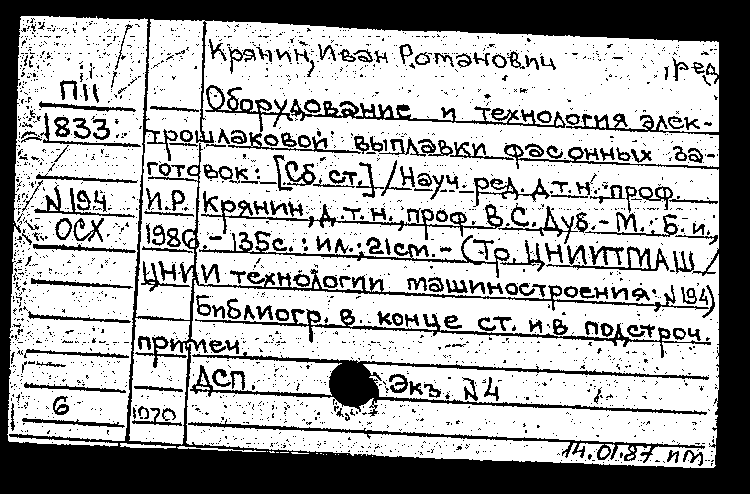 Крянин, Иван Романович, ред
П11
Оборудование и технология элек-
1833
трошлаковой выплавки фасонных за-
готовок: [Сб. ст.] / Науч. ред. д.т.н., проф.
N194
И.Р. Крянин, д.т.н., проф. В.С. Дуб. - М.: Б.и.,
ОСХ
1986. - 135с.: ил.; 21см. - (Тр. ЦНИИТМАШ /
ЦНИИ технологии машиностроения; N194)
Библиогр. в конце ст. и в подстроч.
примеч.
ДСП. Экз. N4
6
1070
14.01.87 пт